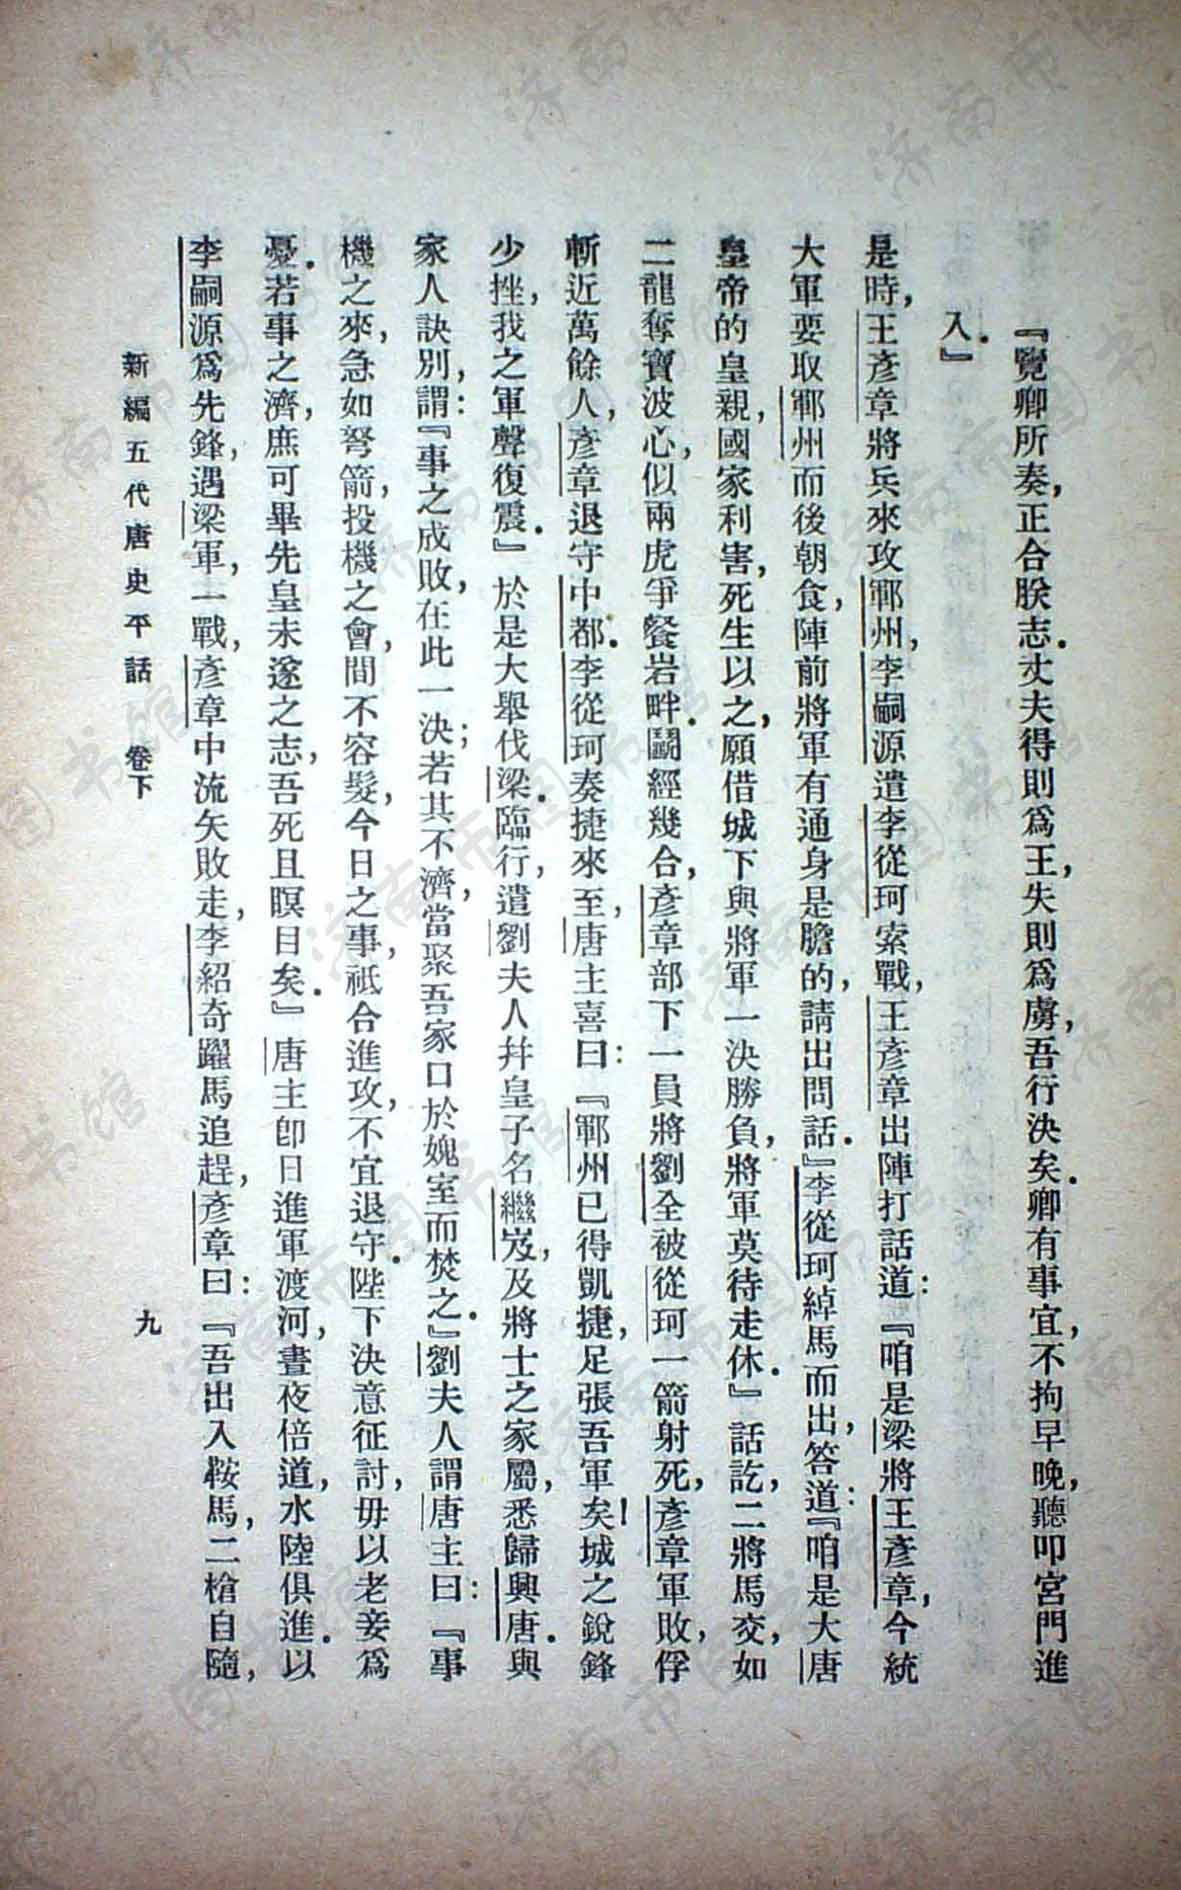 『覽卿所奏，正合朕志．丈夫得則爲王，失則爲虜，吾行決矣．卿有事宜，不拘早晚，聽叩宮門進
入．』
是時，王彥章將兵來攻鄆州，李嗣源遣李從珂索戰，王彥章出陣打話道：『咱是梁將王彥章，今統
大軍要取鄆州而後朝食，陣前將軍有通身是膽的，請出問話．』李從珂綽馬而出，答道：『咱是大唐
皇帝的皇親，國家利害，死生以之，願借城下與將軍一決勝負，將軍莫待走休．』話訖，二將馬交，如
二龍奪寶波心，似兩虎爭餐岩畔．鬭經幾合，彥章部下一員將劉全被從珂一箭射死，彥章軍敗，俘
斬近萬餘人，彥章退守中都．李從珂奏捷來至，唐主喜曰：『鄆州已得凱捷，足張吾軍矣！城之銳鋒
少挫，我之軍聲復震．』於是大舉伐梁．臨行，遣劉夫人幷皇子名繼岌，及將士之家屬，悉歸興唐．與
家人訣別，謂：『事之成敗，在此一決；若其不濟，當聚吾家口於媿室而焚之．』劉夫人謂唐主曰：『事
機之來，急如弩箭，投機之會，間不容髮，今日之事，祗合進攻，不宜退守．陛下決意征討，毋以老妾爲
憂．若事之濟，庶可畢先皇未遂之志，吾死且瞑目矣．』唐主卽日進軍渡河，晝夜倍道，水陸俱進．以
李嗣源爲先鋒，遇梁軍，一戰，彥章中流矢敗走，李紹奇躍馬追趕，彥章曰：『吾出入鞍馬，二槍自隨，
新編五代唐史平話　卷下　九
济南市图书馆